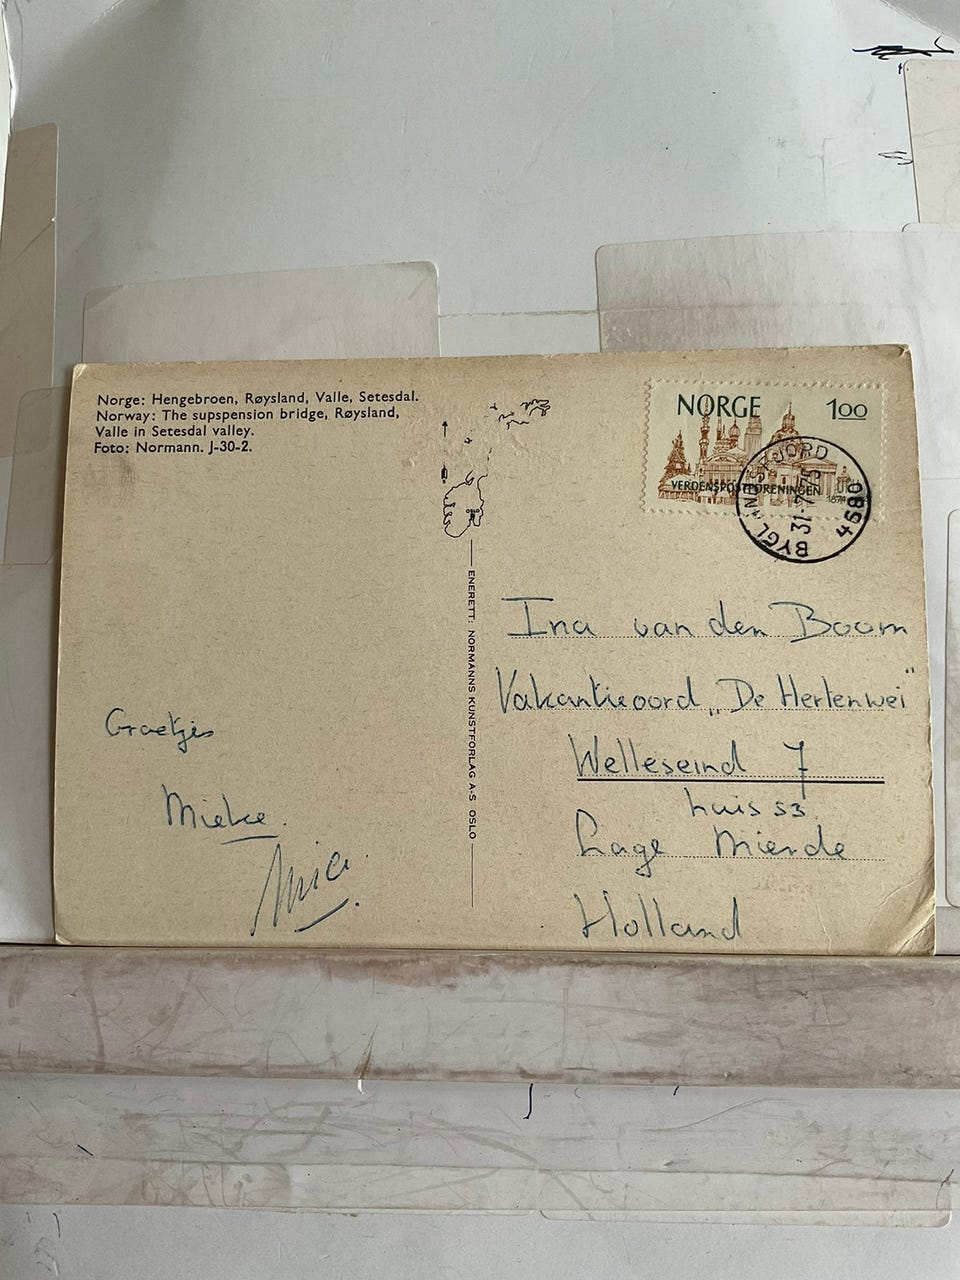 Norge: Hengebroen, Røysland, Valle, Setesdal.
Norway: The supspension bridge, Røysland,
Valle in Setesdal valley.
Foto: Normann. J-30-2.
OSLO
ENERETT: NORMANNS KUNSTFORLAG A-S OSLO
NORGE 100
VERDENSPOSTFORENINGEN
1874
BYGLANDSFJORD
31-7-75
4680
Ina van den Boom
Vakantieoord „De Hertenwei"
Welleseind 7
huis 53
Lage Mierde
Holland
Groetjes
Mieke.